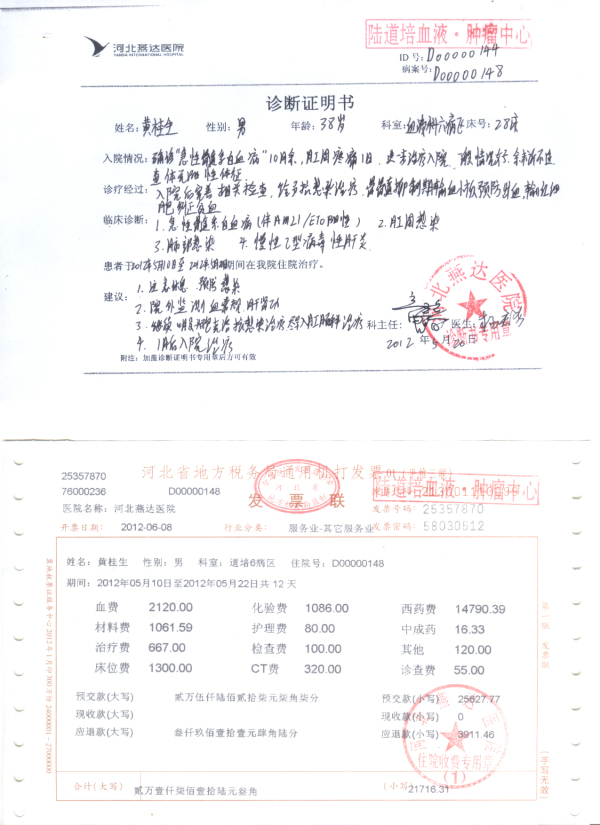 河北燕达医院
YANDA INTERNATIONAL HOSPITAL
陆道培血液·肿瘤中心
ID号: D00000144
病案号: D00000148
诊断证明书
姓名: 黄桂生 性别: 男 年龄: 38岁 科室: 血液科六病区 床号: 28床
入院情况: 确诊"急性髓系白血病"10月余, 肛周疼痛1日
查体无阳性体征
诊疗经过: 入院后完善相关检查, 给予抗感染治疗, 骨髓抑制期输血小板预防出血, 输红细
胞纠正贫血
临床诊断: 1.急性髓系白血病(伴AML1/ETO阳性) 2.肛周感染
3.肺部感染 4.慢性乙型病毒性肝炎
患者于2012年5月10日至 期间在我院住院治疗。
建议: 1.注意休息、预防感染
2.院外监测血常规、肝肾功
3.继续 抗感染治疗 治疗
4.1月后入院治疗
科主任: 医生:
2012年5月20日
附注: 加盖诊断证明书专用章后方可有效
河北燕达医院
诊断证书专用章
河北省地方税务局通用机打发票
陆道培血液·肿瘤中心
25357870
76000236 D00000148
发票联
医院名称: 河北燕达医院
发票号码: 25357870
开票日期: 2012-06-08 行业分类: 服务业-其它服务业 发票密码: 58030512
姓名: 黄桂生 性别: 男 科室: 道培6病区 住院号: D00000148
期间: 2012年05月10日至2012年05月22日共 12 天
血费 2120.00 化验费 1086.00 西药费 14790.39
材料费 1061.59 护理费 80.00 中成药 16.33
治疗费 667.00 检查费 100.00 其他 120.00
床位费 1300.00 CT费 320.00 诊查费 55.00
预交款(大写) 贰万伍仟陆佰贰拾柒元柒角柒分 预交款(小写) 25627.77
现收款(大写) 现收款(小写) 0
应退款(大写) 叁仟玖佰壹拾壹元肆角陆分 应退款(小写) 3911.46
合计(大写) 贰万壹仟柒佰壹拾陆元叁角 (小写) 21716.31
住院收费专用章
(1)
第一联 发票联
(手写无效)